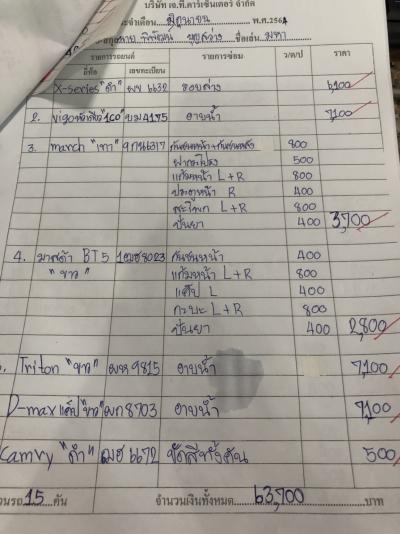 บริษัท เอ.ที.คาร์เซ็นเตอร์ จำกัด
ประจำเดือน มิถุนายน พ.ศ.2564
ชื่อเล่น มหา
รายการรถยนต์ รายการซ่อม ว/ด/ป ราคา
ยี่ห้อ เลขทะเบียน
X-series "ดำ" 6632 รอบล่าง 6,100
2. Vigo 4175 อาบน้ำ 7,100
3. march "เทา" 9กผ6317 กันชนหน้า+กันชนหลัง 800
ฝากระโปรง 500
แก้มหน้า L+R 800
ประตูหน้า R 400
สะโพก L+R 800
ปั่นยา 400 3,700
4. มาสด้า BT5 1ฒฮ8023 กันชนหน้า 400
"ขาว" แก้มหน้า L+R 800
แค็ป L 400
กระบะ L+R 800
ปั่นยา 400 2,800
Triton "ขาว" 9815 อาบน้ำ 7,100
D-max แค็ป "ขาว" 8703 อาบน้ำ 7,100
Camry "ดำ" 6672 ขัดสีทั้งคัน 500
รถ 15 คัน จำนวนเงินทั้งหมด 63,700 บาท